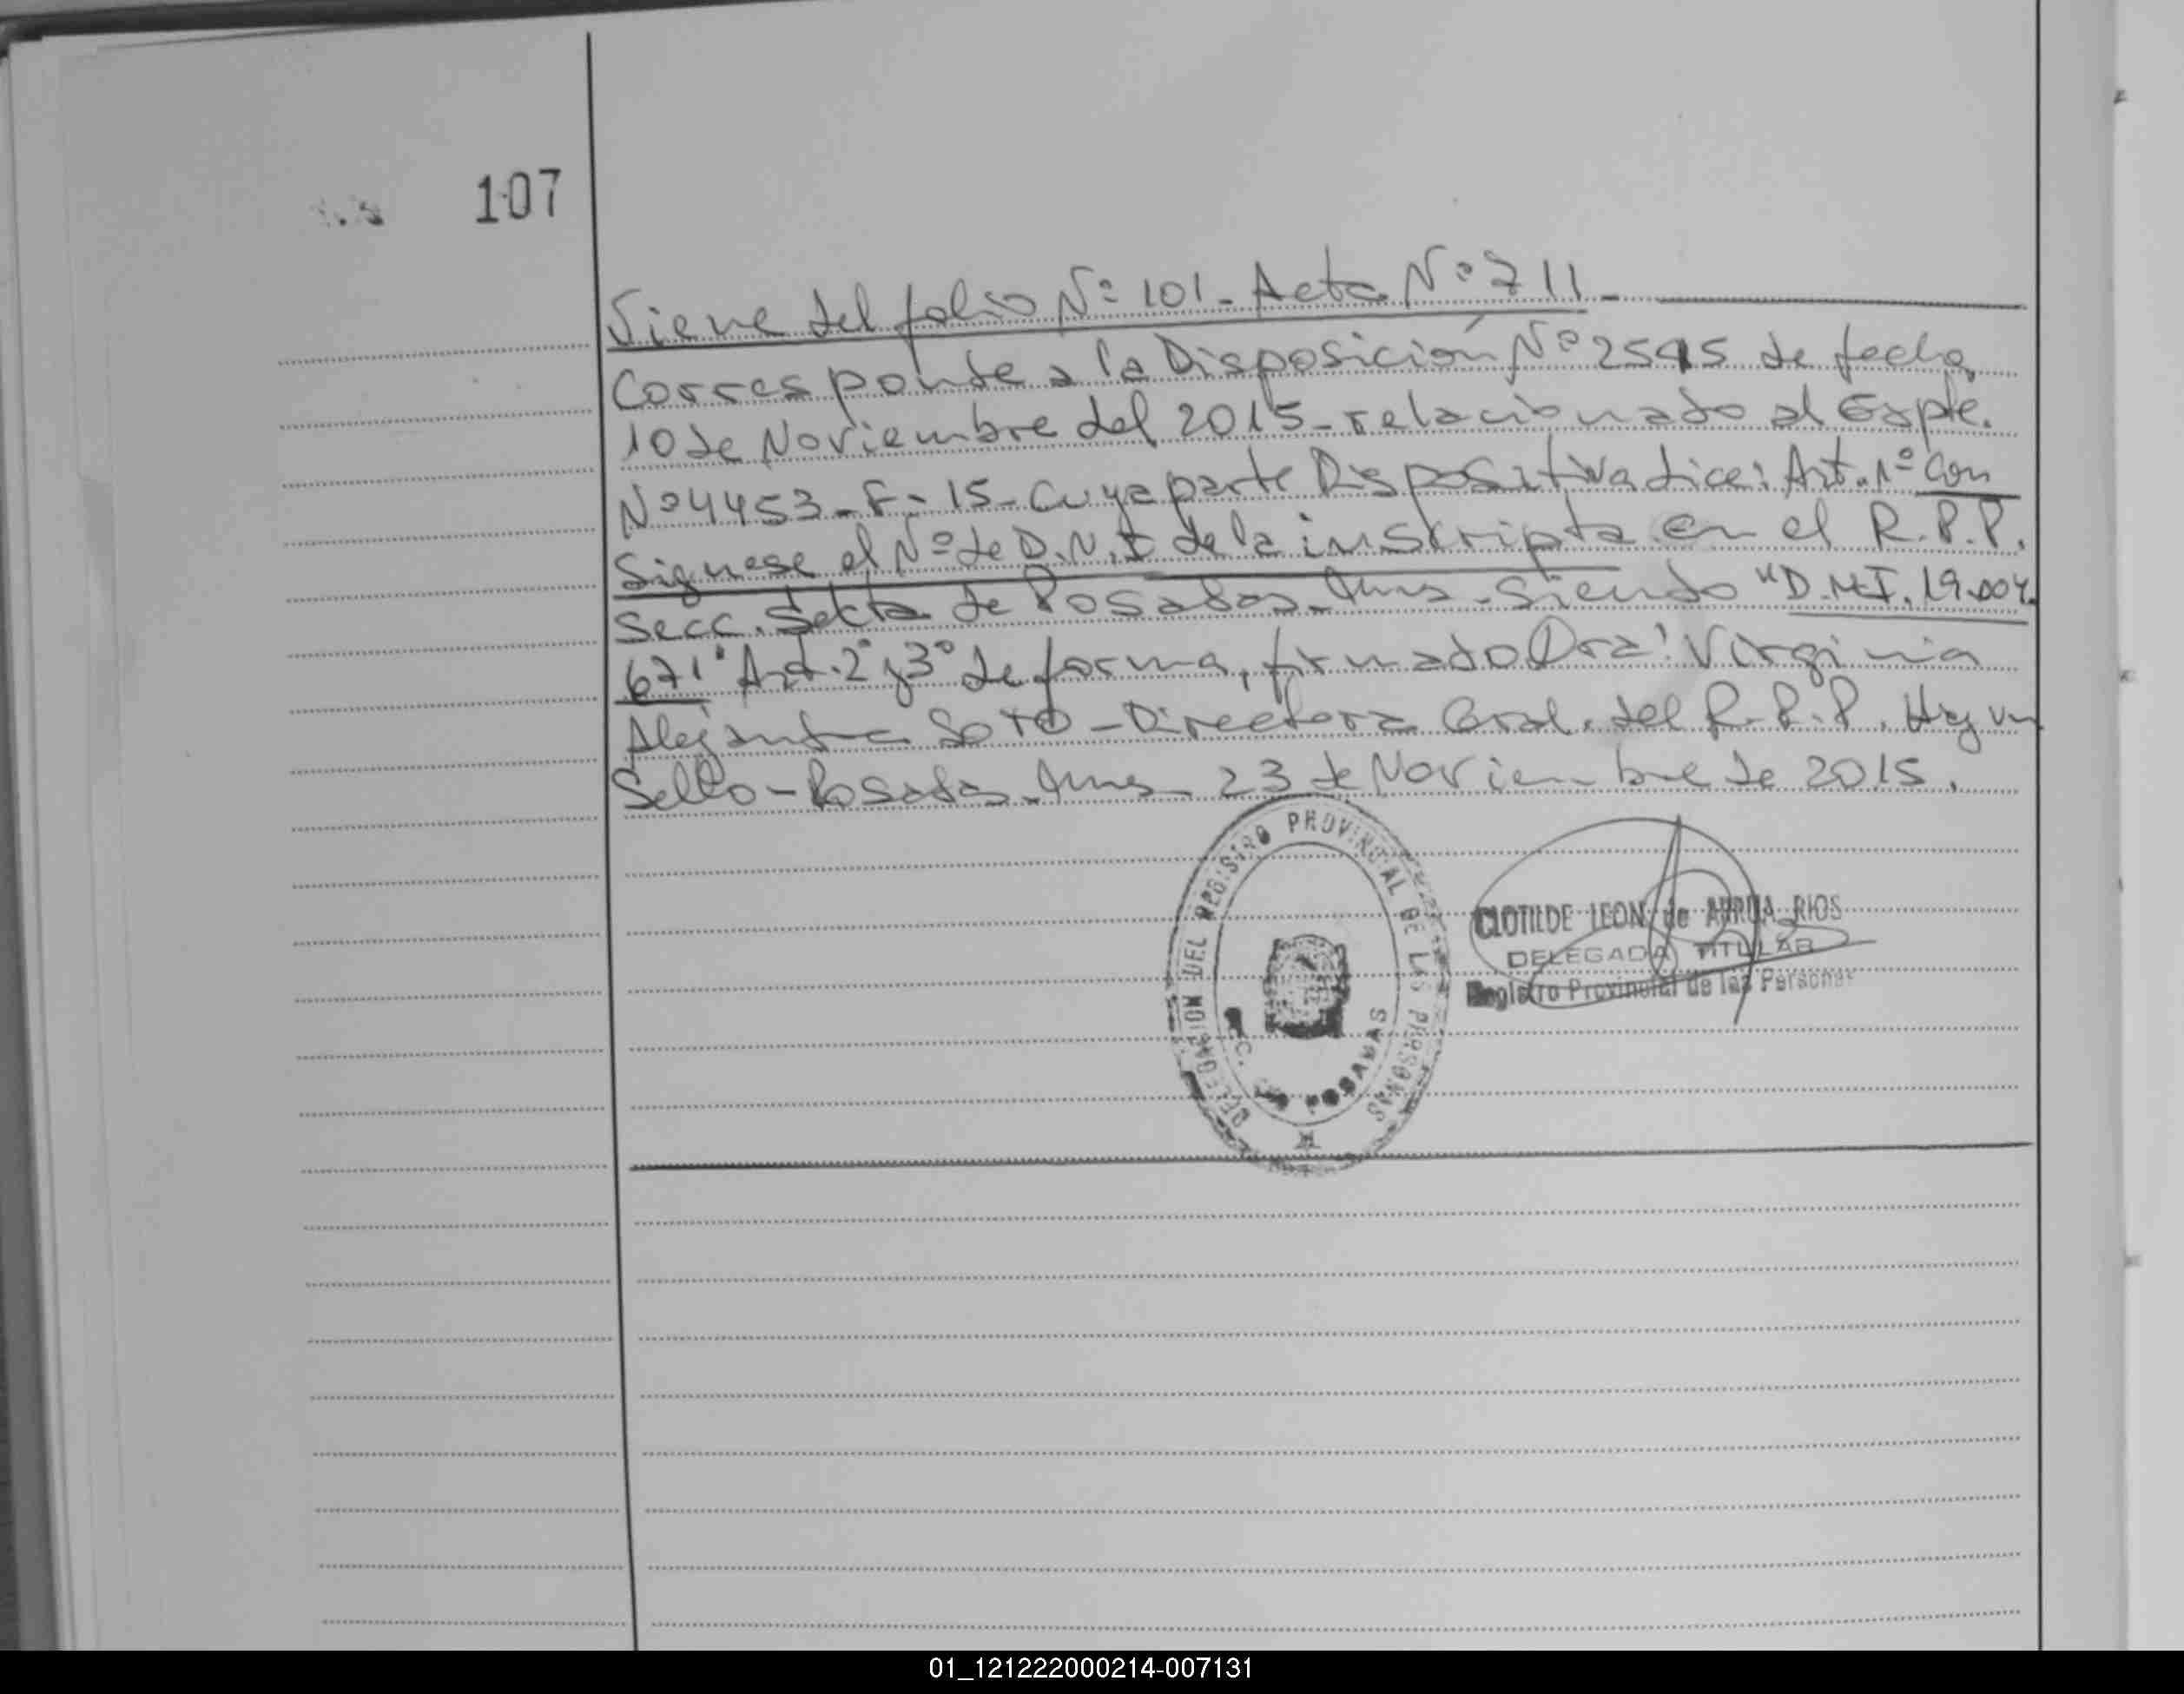 107
Viene del folio Nº 101 - Acta Nº 711 -
Corresponde a la Disposición Nº 2595 de fecha
10 de Noviembre del 2015 - relacionado al Expte.
Nº 4453 - F - 15 - Cuya parte Dispositiva dice: Art. 1º Con
Signese el Nº de D.N.I de la inscripta en el R.P.P.
Secc. Sexta de Posadas - Mnes - Siendo "D.N.I. 19.004.
671" Art. 2º y 3º de forma, firmado Dra: Virginia
Alejandra Soto - Directora Gral. del R.P.P. Hay un
Sello - Posadas - Mnes - 23 de Noviembre de 2015.
DELEGACION DEL REGISTRO PROVINCIAL DE LAS PERSONAS
POSADAS
CLOTILDE LEON de ARRUA RIOS
DELEGADA TITULAR
Registro Provincial de las Personas
01_121222000214-007131